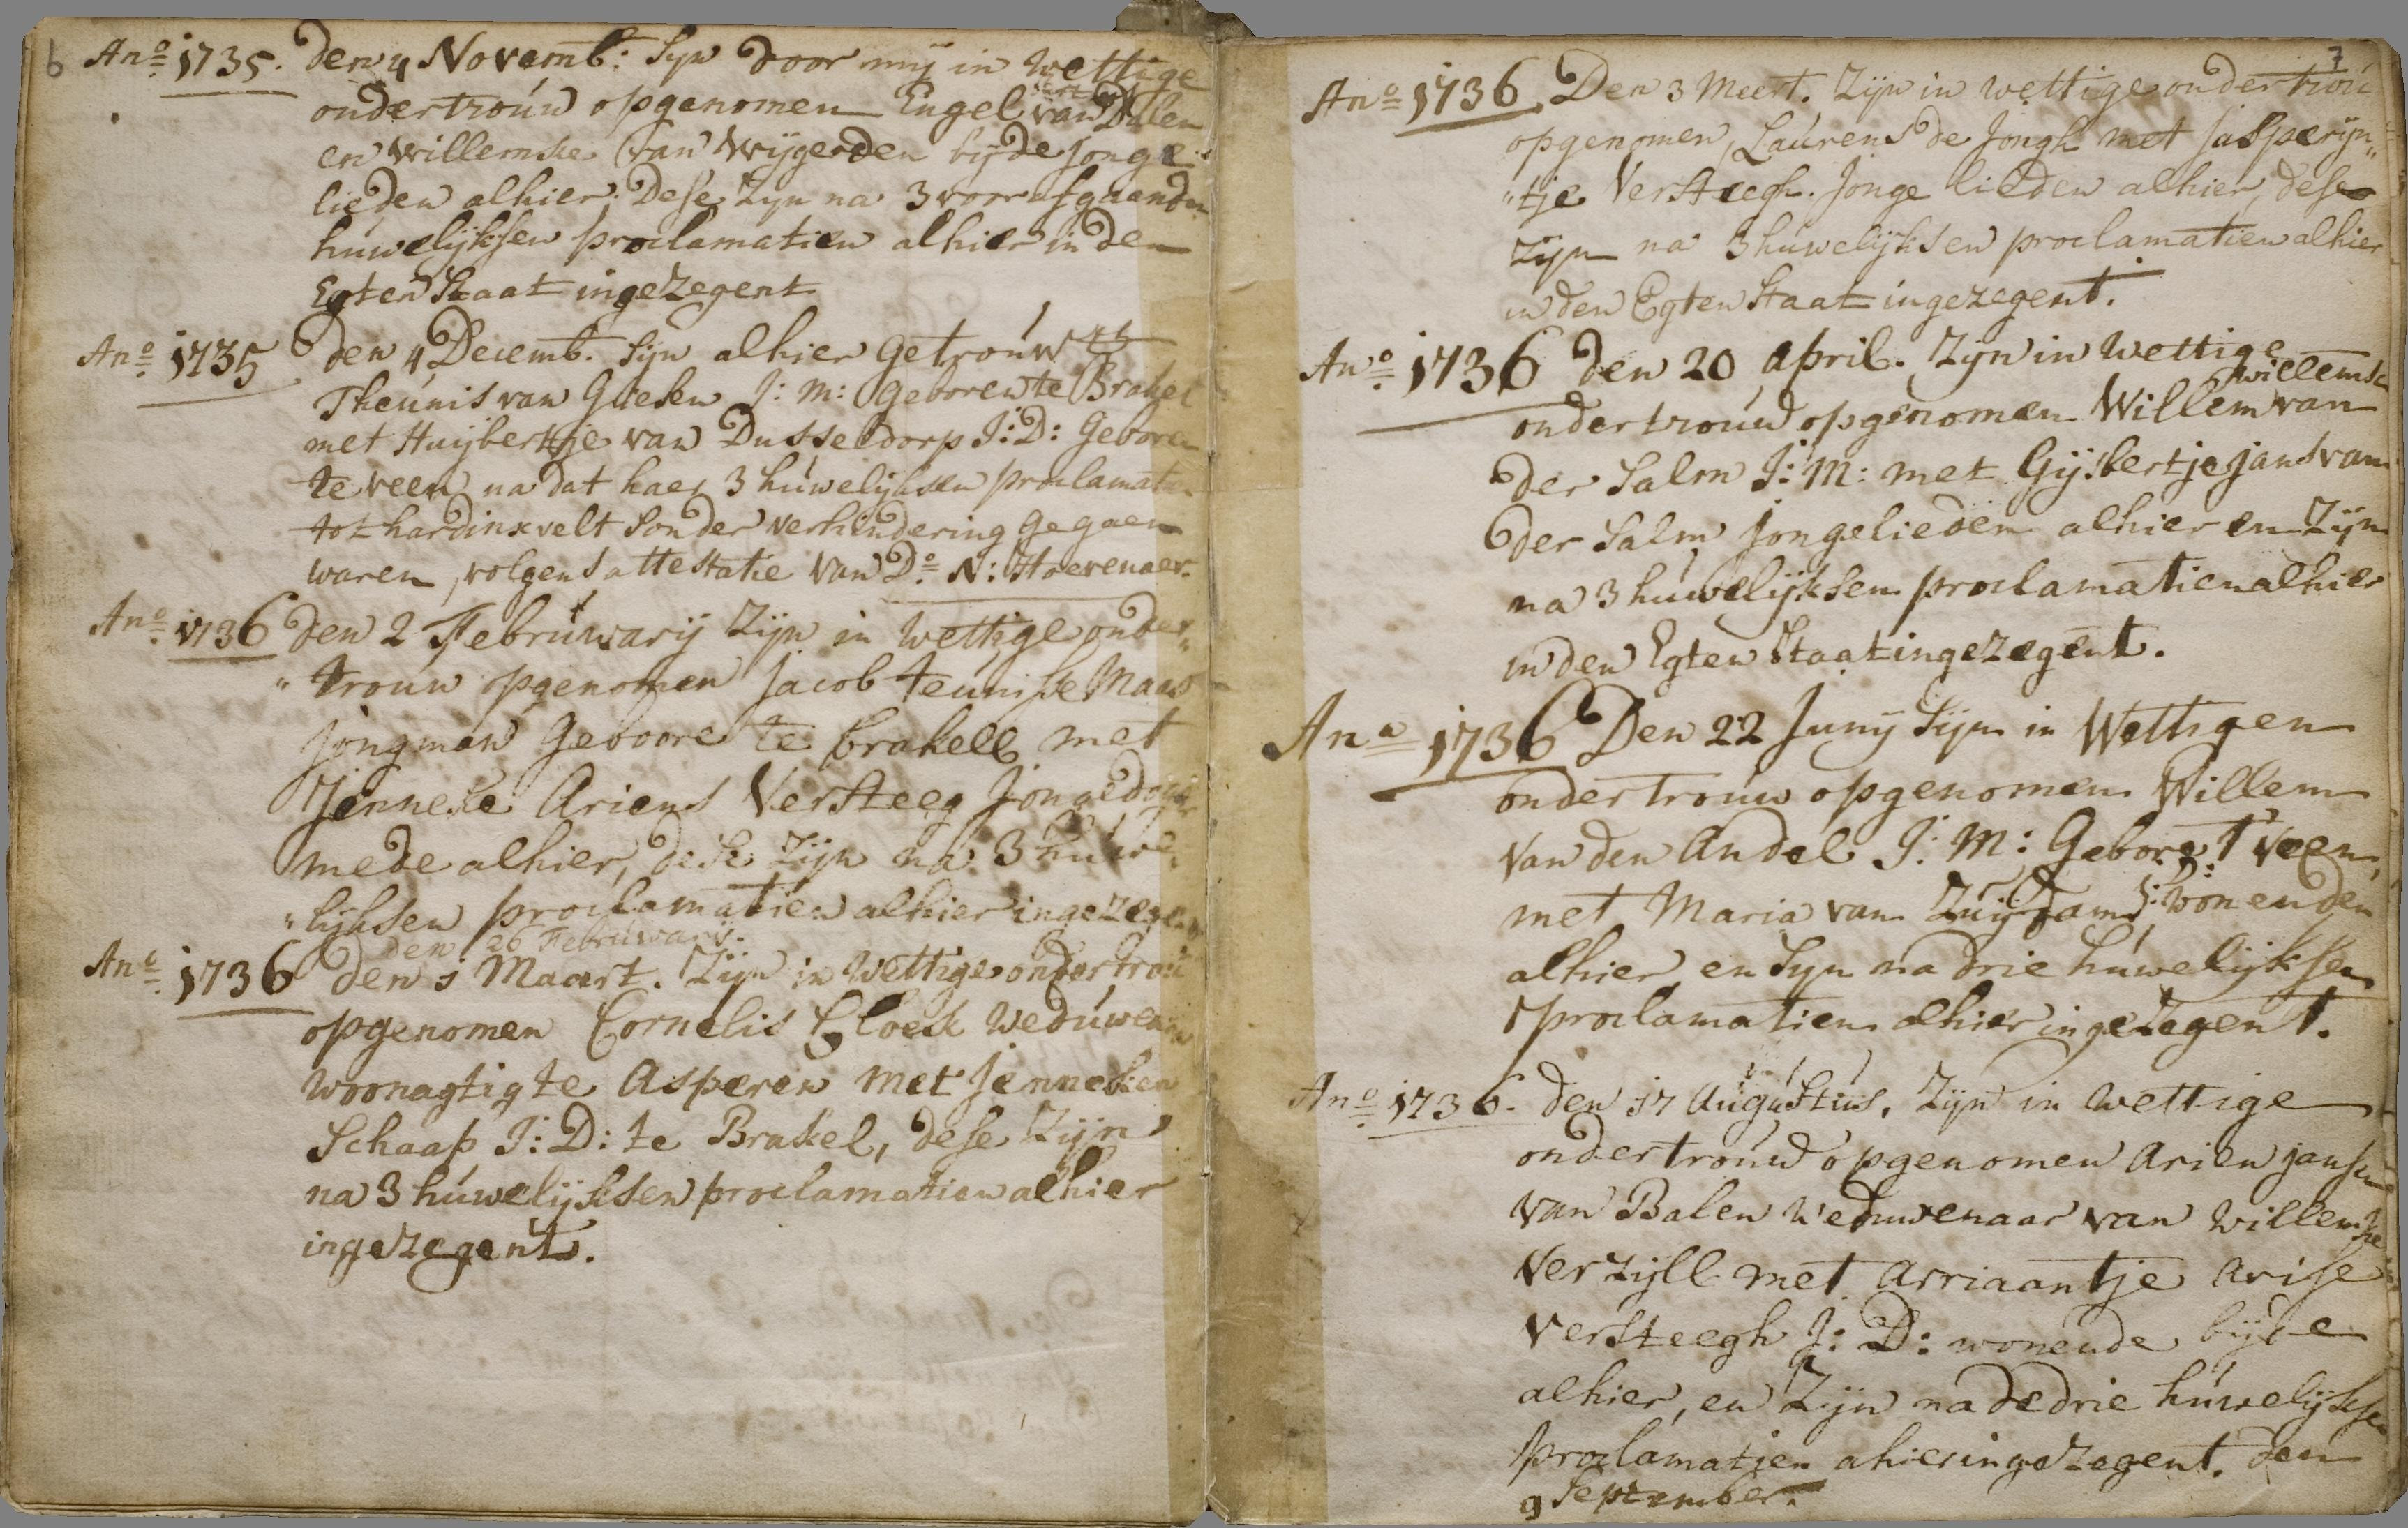 6
Ano 1735. den 4 Novemb: Syn door mij in Wettige
ondertrouw opgenomen Engel van Dalen
en Willemske van Wijgerden bijde jonge
lieden alhier. Dese Zyn na 3 voorafgaande
huwelijksen proclamatien alhier in den
Egten Staat ingezegent
Ano 1735 den 4 Decemb. Sijn alhier getrouwt
Theunis van Giesen J: M: geboren te Brakel
met Huijbertje van Dusseldorp J: D: Geboren
te veen na dat haer 3 huwelijksen proclamatien
tot hardinxvelt Sonder verhindering gegaen
waren, volgens attestatie van Do N: Hoevenaer.
Ano 1736 den 2 Februwarij Zijn in Wettige onder„
„trouw opgenomen Jacob Teunisse Maas
jongman Geboore te brakell met
Jenneke Ariens Versteeg Jongedogter
mede alhier, dese Zijn na 3 huwe„
„lijksen proclamatien alhier ingezegent
den 26 Februwarij.
Ano 1736 den 1 Maart. Zijn in Wettige ondertrou
opgenomen Cornelis Cloek Weduwenaar
Woonagtig te Asperen met Jenneken
Schaap J: D: te Brakel, dese Zijn
na 3 huwelijksen proclamatien alhier
ingezegent.
7
Ano 1736 Den 3 Meert. Zijn in wettige ondertrou
opgenomen, Laurens de Jongh met Jasperijn„
„tje Versteegh. Jonge lieden alhier, dese
Zijn na 3 huwelijksen proclamatien alhier
in den Egten Staat ingezegent.
Ano 1736 den 20 April. Zyn in Wettige
willemse
ondertrouw opgenomen Willem van
der Salm J: M: met Gijsbertje jans van
der Salm jongelieden alhier en Zijn
na 3 huwelijksen proclamatien alhier
in den Egten Staat ingezegent.
Ano 1736 Den 22 Junij Sijn in Wettigen
ondertrouw opgenomen Willem
van den Andel J: M: Gebore T veen,
met Maria van Zuijdam J: D: wonende
alhier en Syn na drie huwelijksen
proclamatien alhier ingezegent.
Ano 1736. den 17 Augustus. Zijn in Wettige
ondertrouw opgenomen Arien jansen
van Balen Weduwenaar van Willemke
Verzijll met Arriaantje Arise
Versteegh J: D: wonende bijde
alhier, en Zijn na de drie huwelijksen
proclamatien ahier ingezegent. den
9 September.